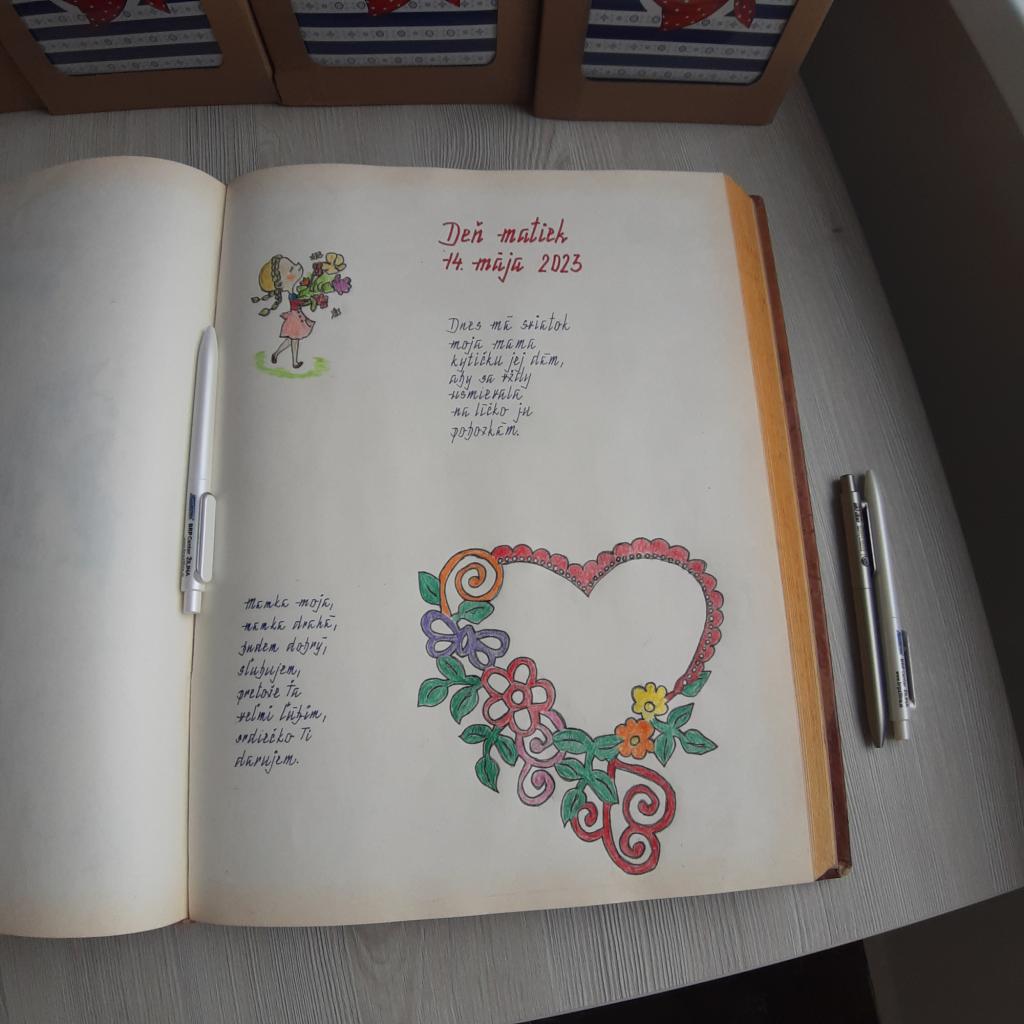 Deň matiek
14. mája 2023
Dnes má sviatok
moja mama
kytičku jej dám,
aby sa vždy
usmievala
na líčko ju
pobozkám.
Mamka moja,
mamka drahá,
budem dobrý,
sľubujem,
pretože Ťa
veľmi ľúbim,
srdiečko Ti
darujem.
BRP Center ŽILINA